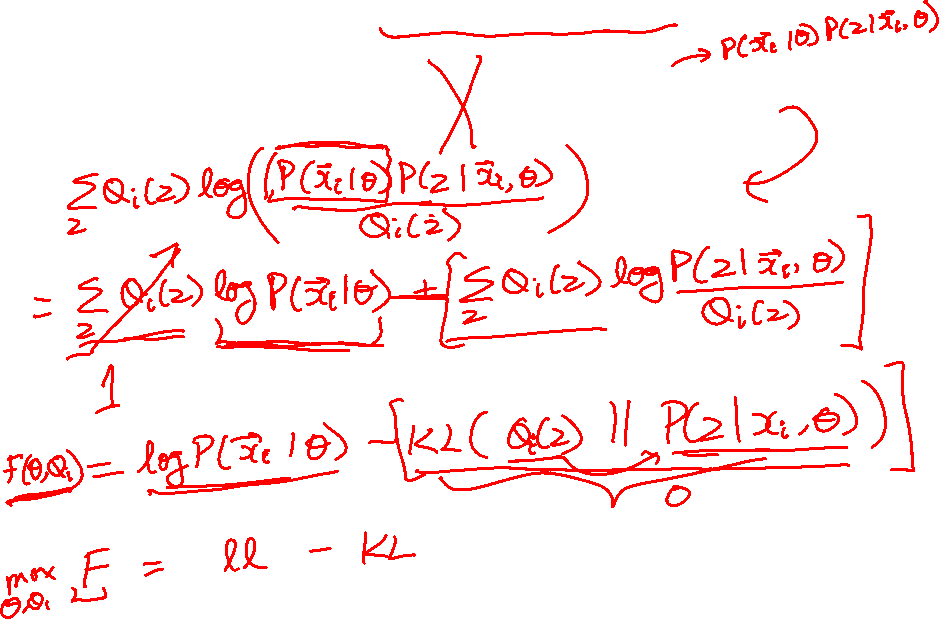 → P(x⃗ᵢ|θ) P(z|x⃗ᵢ, θ)
Σ_z Qᵢ(z) log( (P(x⃗ᵢ|θ) P(z|x⃗ᵢ, θ)) / Qᵢ(z) )
= Σ_z Qᵢ(z) log P(x⃗ᵢ|θ) + [ Σ_z Qᵢ(z) log P(z|x⃗ᵢ, θ) / Qᵢ(z) ]
1
F(θ,Qᵢ) = log P(x⃗ᵢ|θ) - [ KL( Qᵢ(z) || P(z|xᵢ, θ) ) ]
0
max_{θ,Qᵢ} F = ll - KL